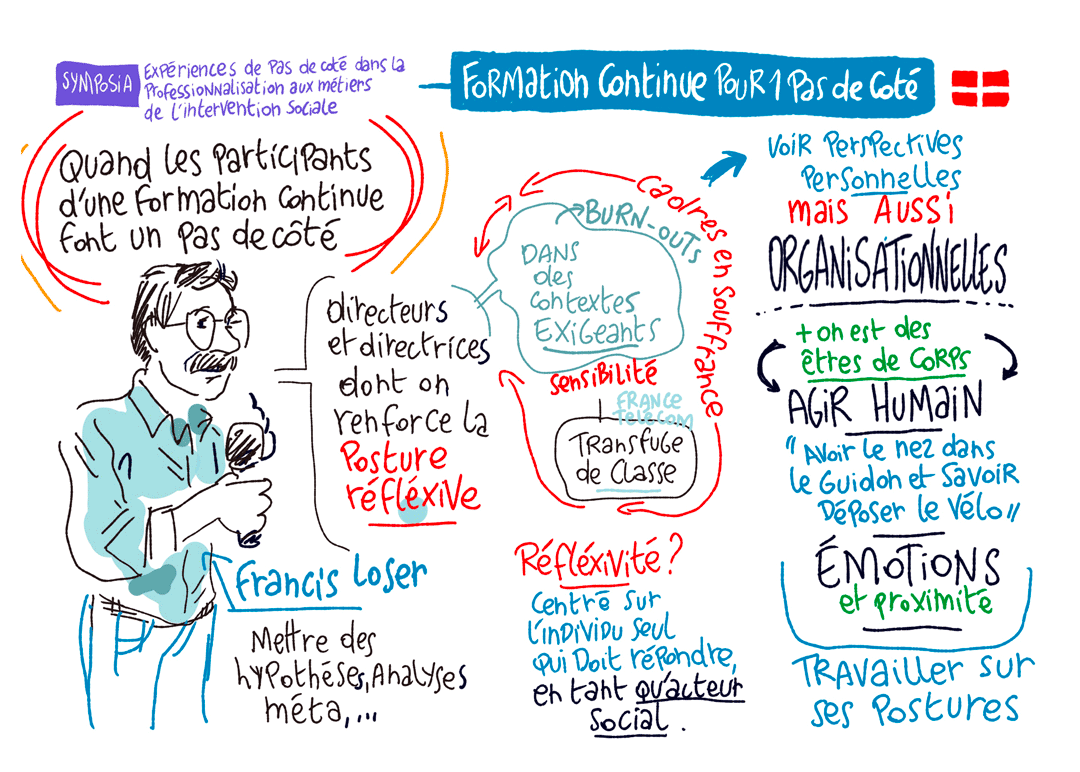 SYMPOSIA
Expériences de pas de coté dans la
Professionnalisation aux métiers
de l'intervention Sociale
Formation Continue Pour 1 Pas de Coté
Quand les Participants
d'une formation Continue
font un pas de côté
directeurs
et directrices
dont on
renforce la
Posture
réfléxive
Francis Loser
Mettre des
hypothéses, Analyses
méta,...
BURN-OUTS
DANS
des
Contextes
EXiGEANTS
cadres en souffrance
sensibilité
FRANCE
Télécom
Transfuge
de Classe
Réfléxivité ?
Centré sur
l'individu seul
qui doit répondre,
en tant qu'acteur
social.
Voir Perspectives
Personnelles
mais AUSSi
ORGANiSATiONNELLES
+ on est des
êtres de CORPS
AGiR HUMAiN
"Avoir le nez dans
le Guidon et Savoir
Déposer le Vélo"
ÉMOTiONS
et proximité
TRAVAiller sur
ses Postures